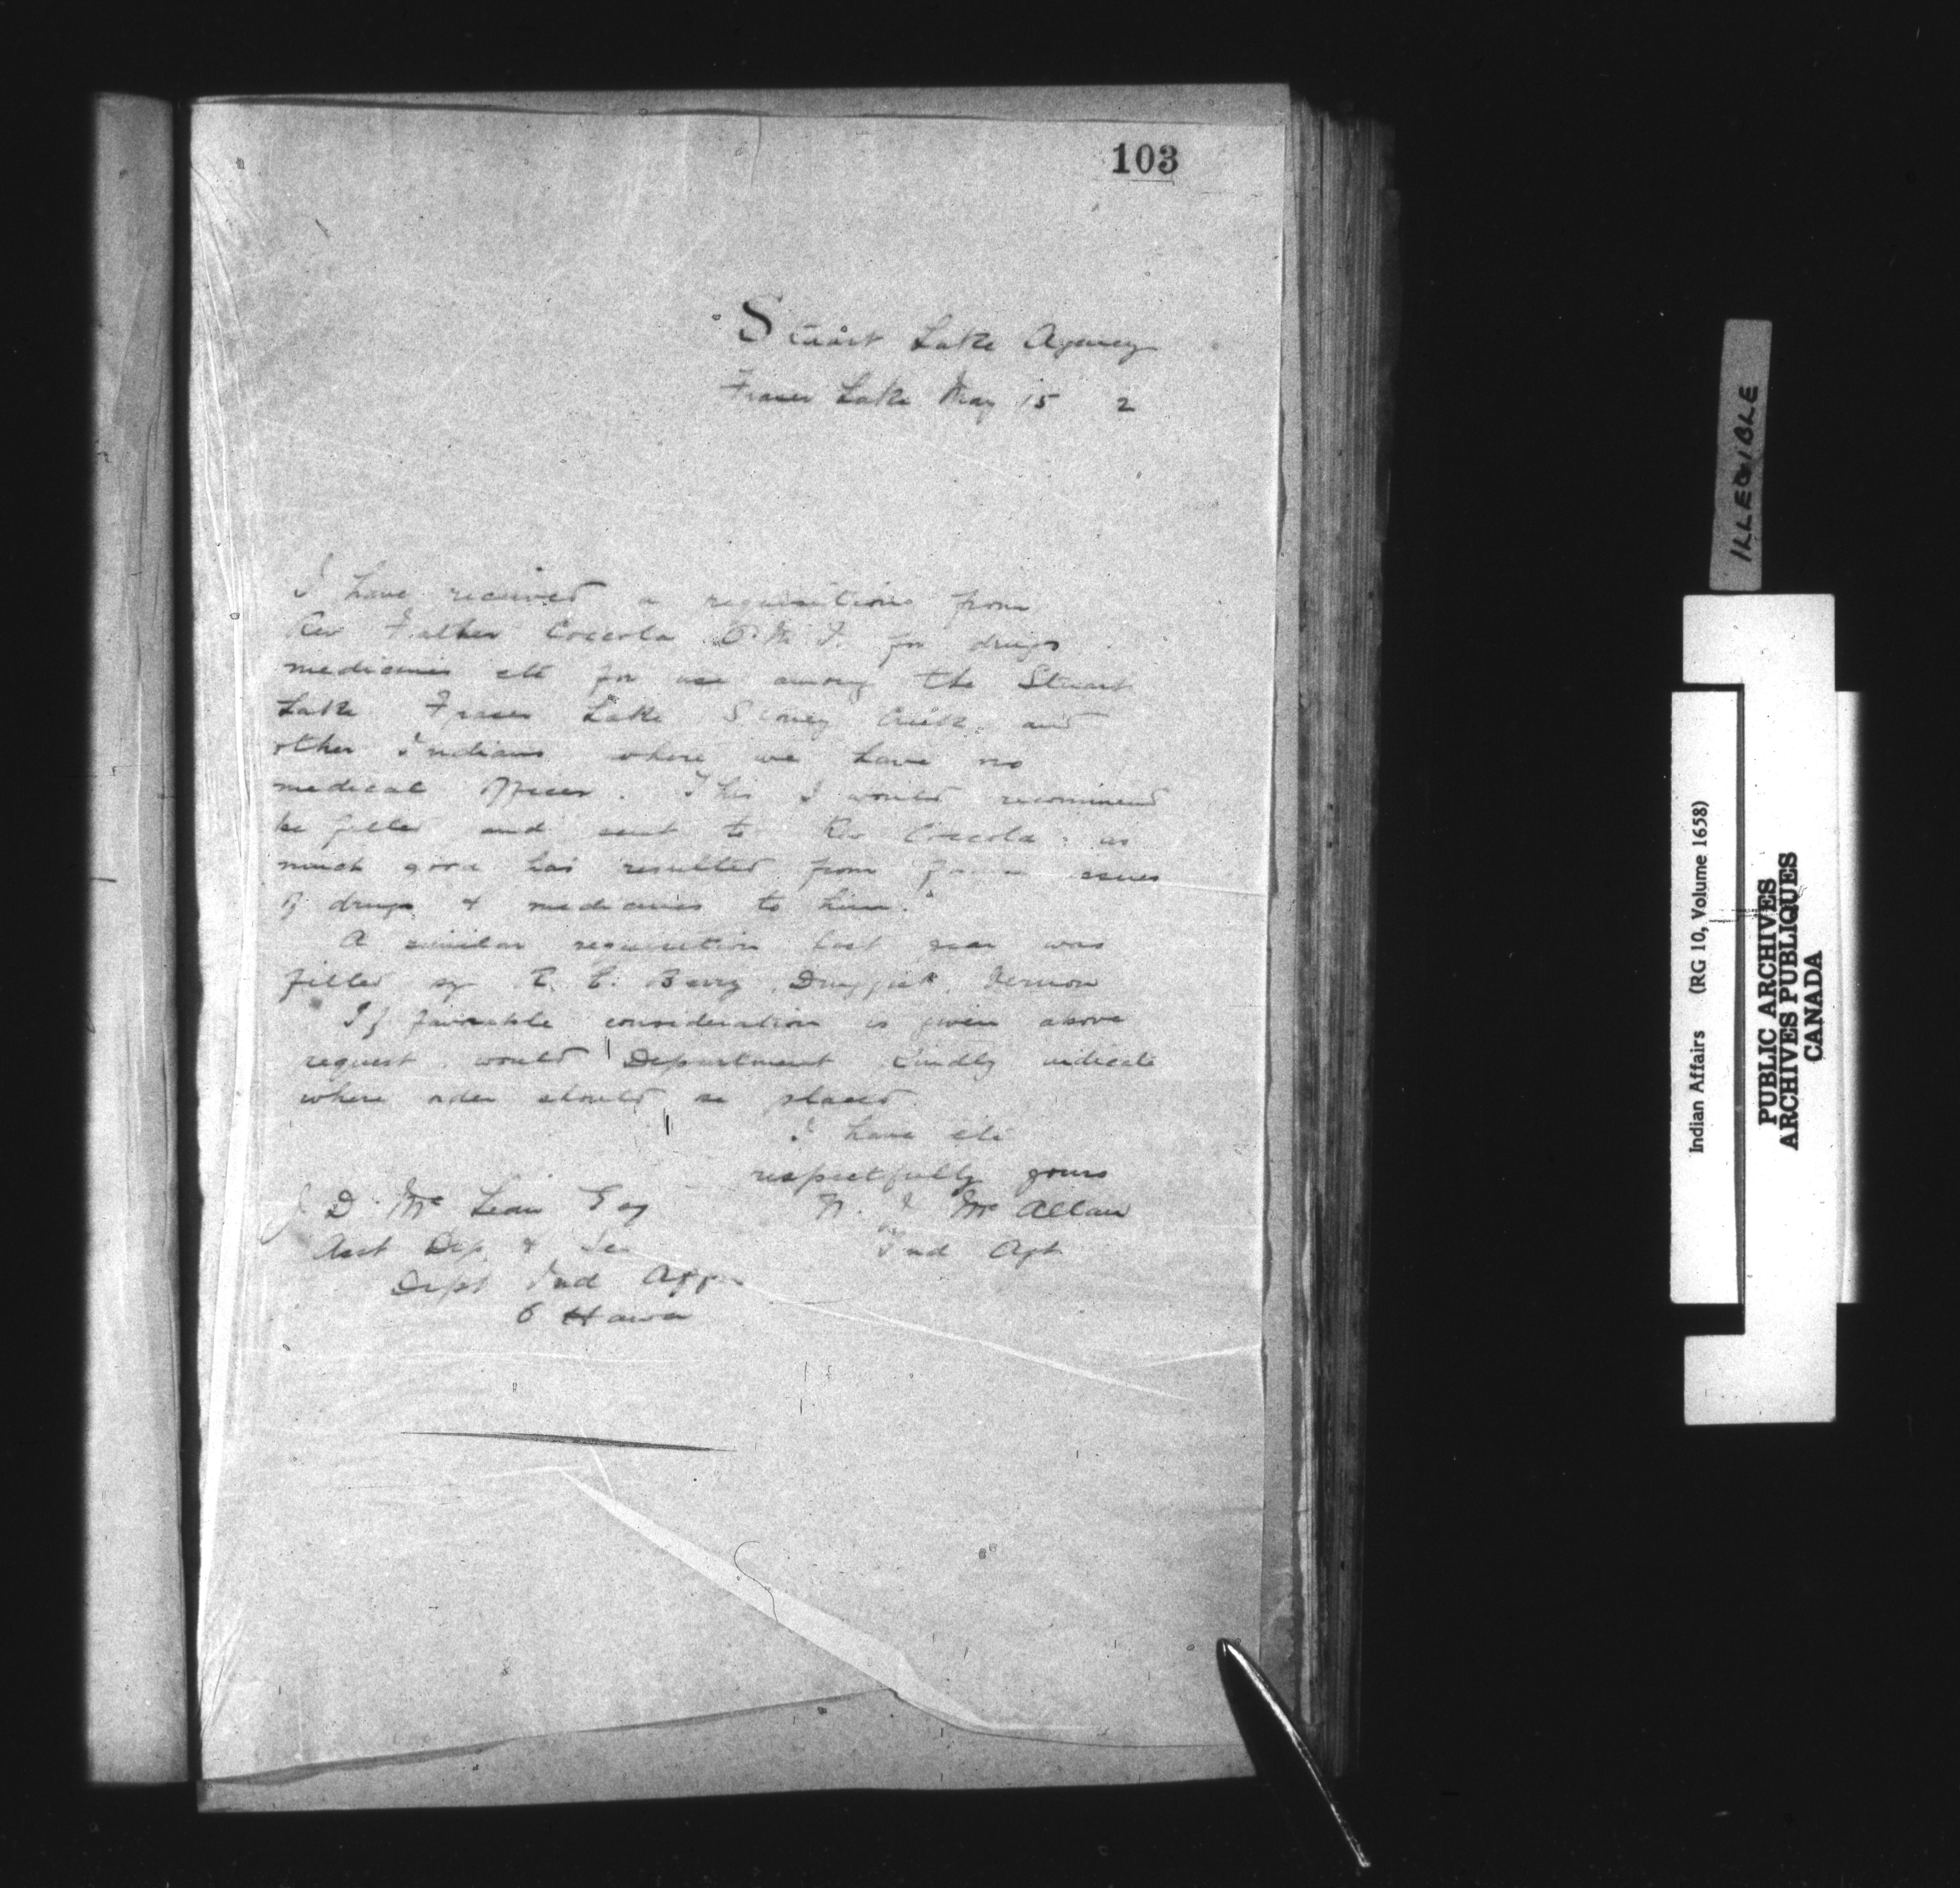 103
Stuart Lake Agency
Fraser Lake May 15 2
I have received a requisitions from
Rev Father Coccola O.M.I. for drugs
medicines etc for use among the Stuart
Lake Fraser Lake Stoney Creek and
other Indians where we have no
medical officer. This I would recommend
be filled and sent to Rev Coccola as
much good has resulted from issues
of drugs & medicines to him.
A similar requisition last year was
filled by R. E. Berry Druggist Vernon
If favorable consideration is given above
request would Department kindly indicate
where order should be placed
I have etc
respectfully yours
J D Mc Lean Esq
W. J Mc Allan
Asst Dep & Sec
Ind Agt
Dept Ind Affrs
Ottawa
ILLEGIBLE
Indian Affairs (RG 10, Volume 1658)
PUBLIC ARCHIVES
ARCHIVES PUBLIQUES
CANADA